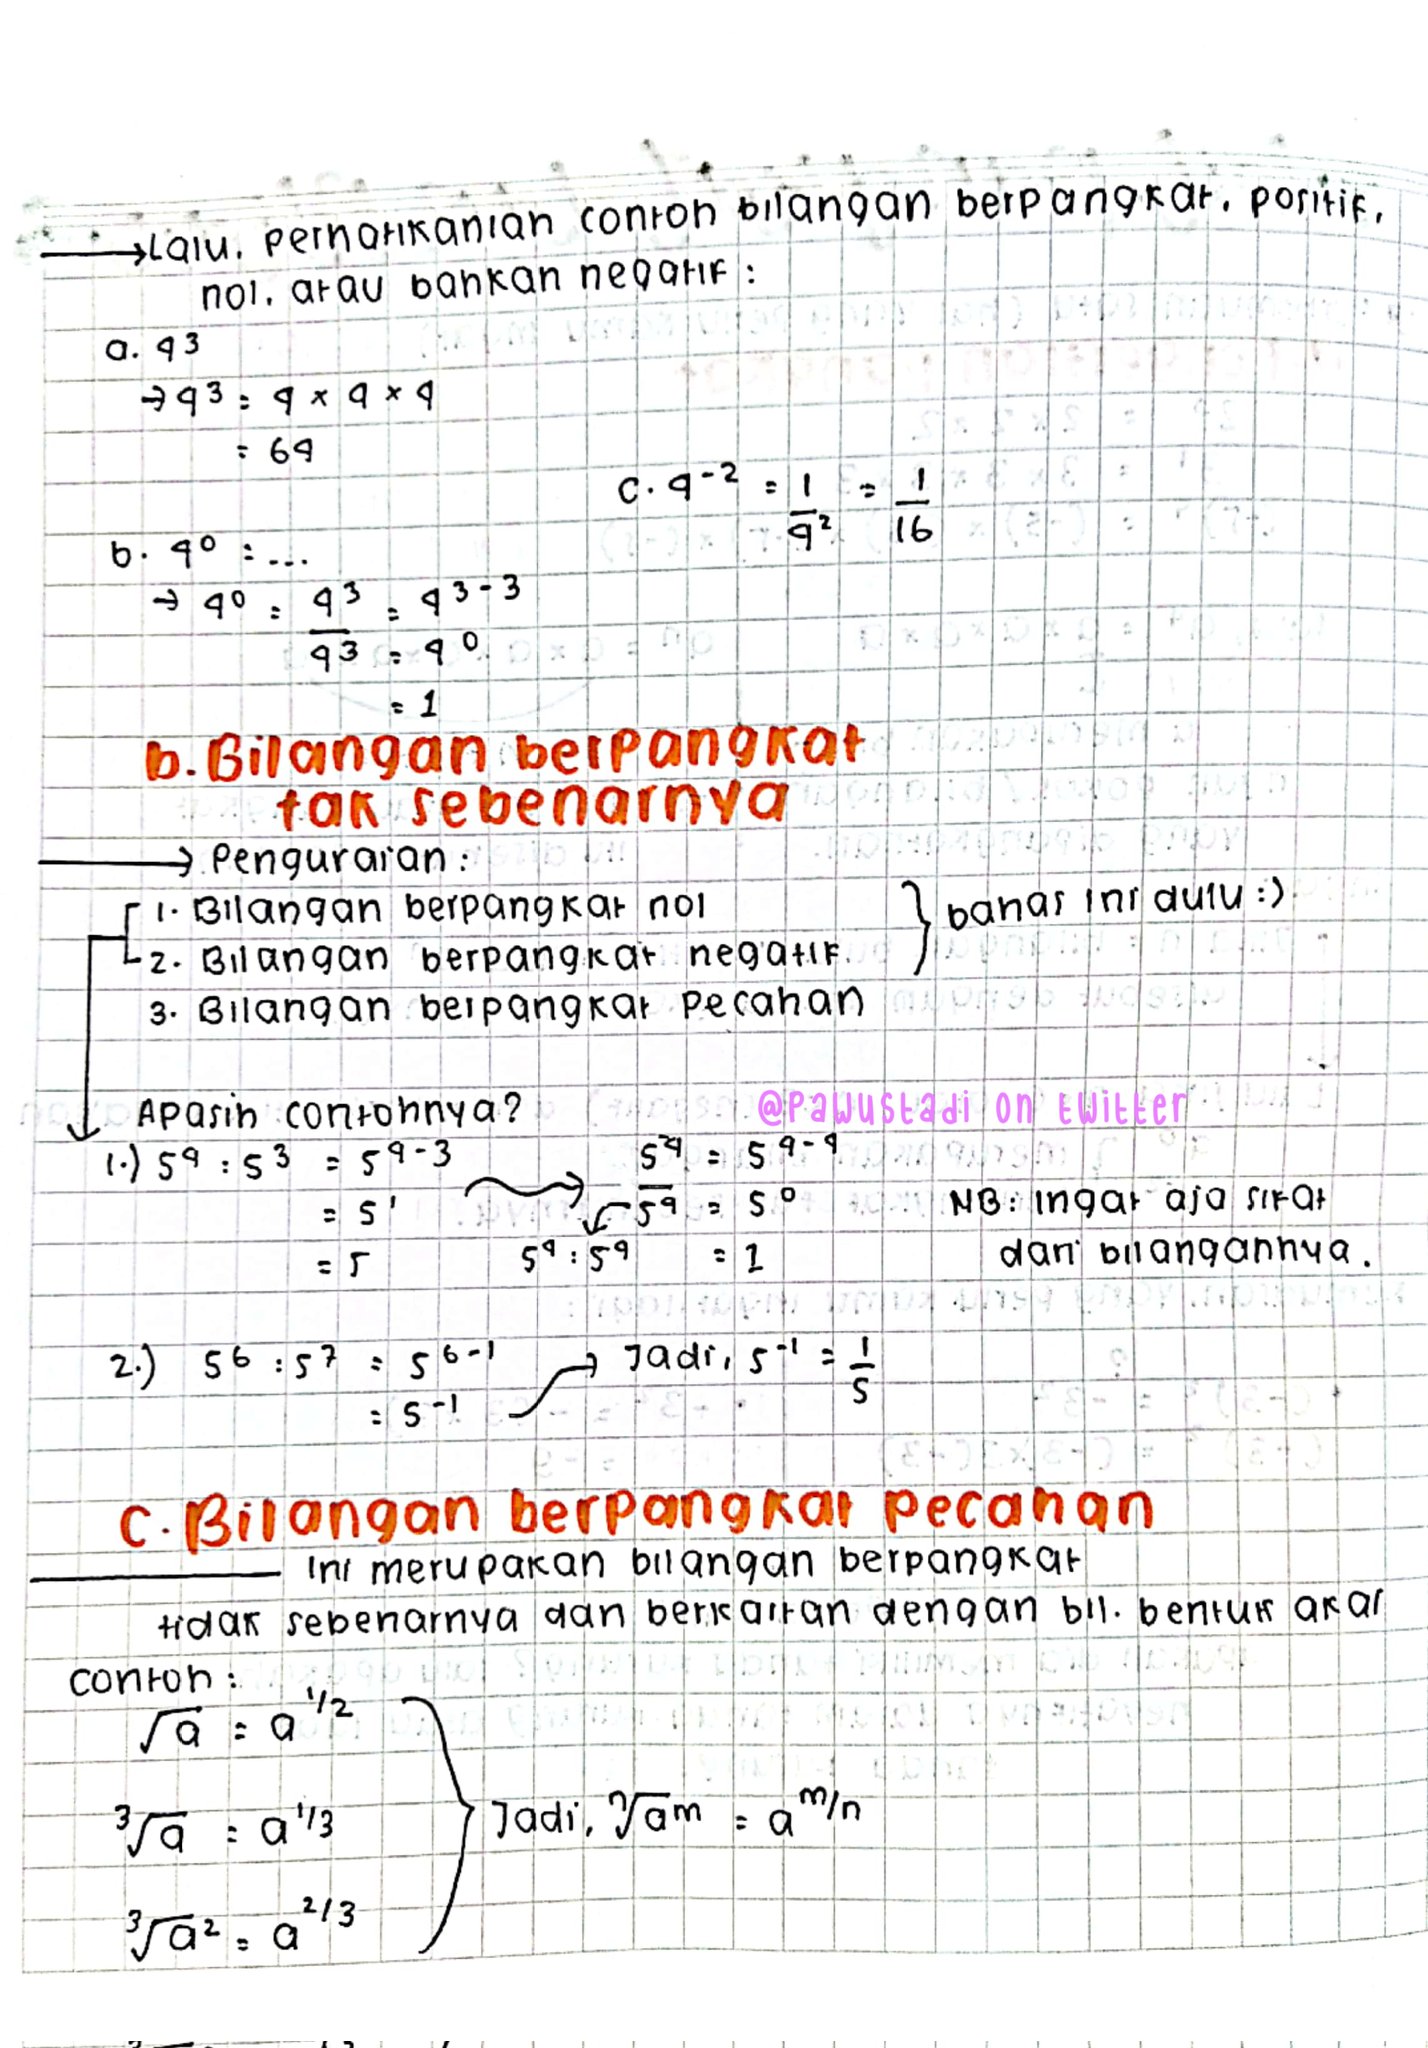 → Lalu, perhatikanlah contoh bilangan berpangkat, positif,
nol, atau bahkan negatif :
a. 4³
→ 4³ = 4 × 4 × 4
= 64
c. 4⁻² = 1/4² = 1/16
b. 4⁰ = ...
→ 4⁰ = 4³/4³ = 4³⁻³
= 4⁰
= 1
b. Bilangan berpangkat
tak sebenarnya
→ Penguraian :
1. Bilangan berpangkat nol
2. Bilangan berpangkat negatif
} bahas ini dulu :)
3. Bilangan berpangkat pecahan
Apasih contohnya?
@Pawustadi on twitter
1.) 5⁴ : 5³ = 5⁴⁻³
= 5¹
= 5
5⁴/5⁴ = 5⁴⁻⁴
= 5⁰
5⁴ : 5⁴ = 1
NB : Ingat aja sifat
dari bilangannya.
2.) 5⁶ : 5⁷ = 5⁶⁻¹
= 5⁻¹
→ Jadi, 5⁻¹ = 1/5
C. Bilangan berpangkat pecahan
Ini merupakan bilangan berpangkat
tidak sebenarnya dan berkaitan dengan bil. bentuk akar
contoh :
√a = a^1/2
³√a = a^1/3
³√a² = a^2/3
Jadi, ⁿ√aᵐ = a^m/n